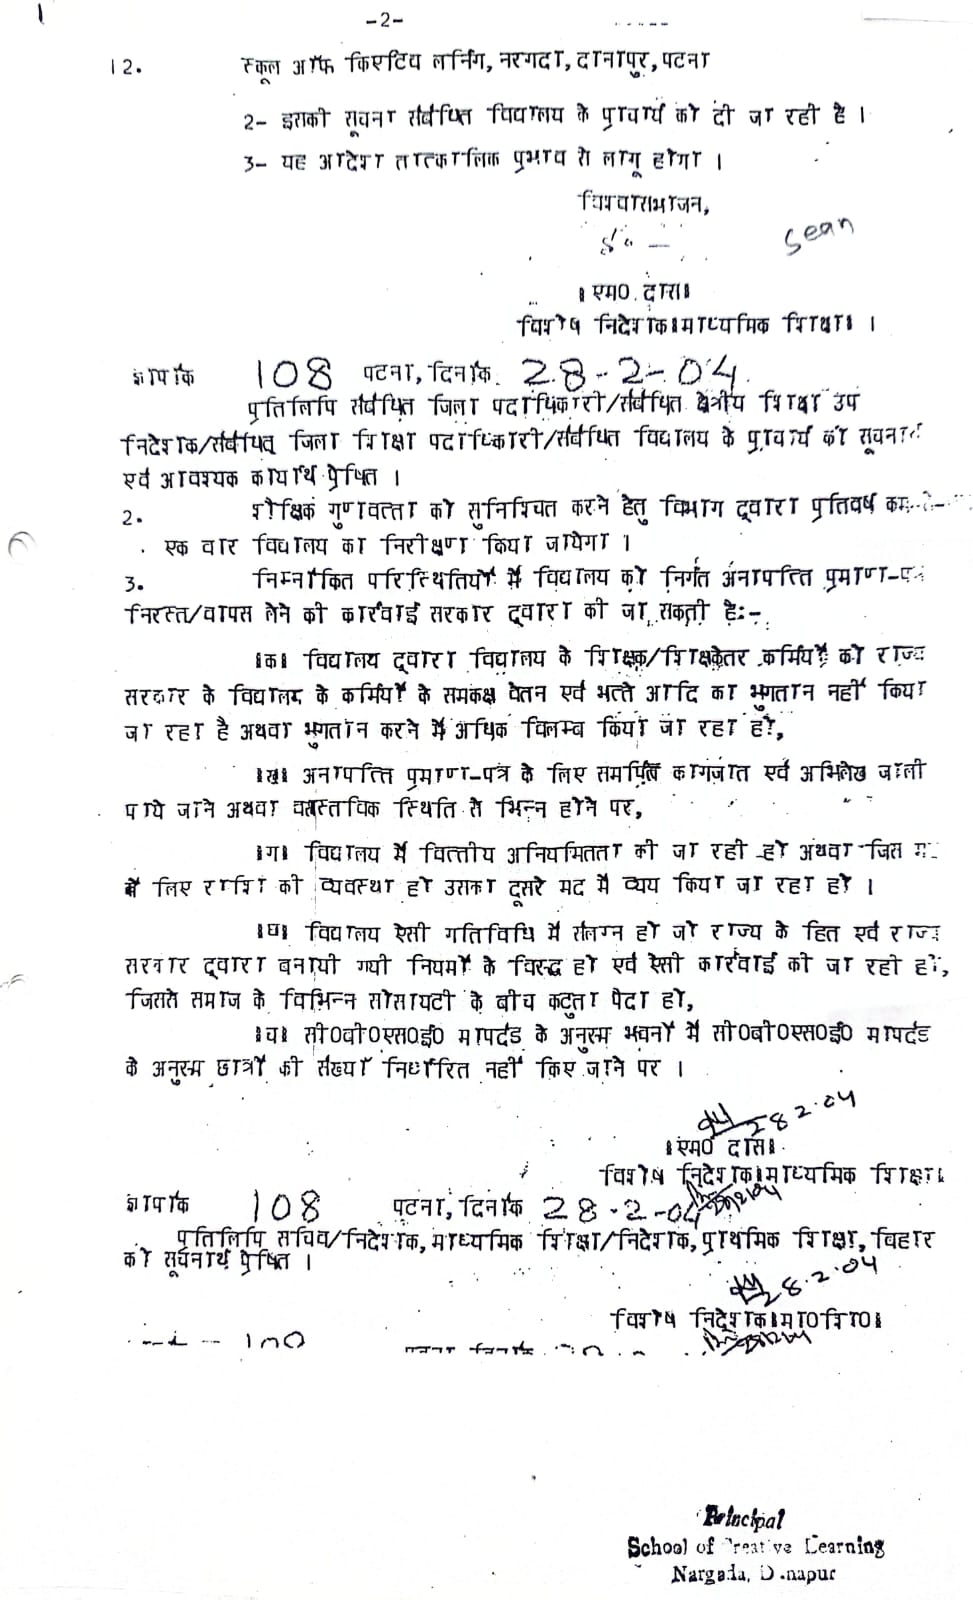 1
-2-
12. स्कूल ऑफ क्रिएटिव लर्निंग, नरगदा, दानापुर, पटना
2- इसकी सूचना संबंधित विद्यालय के प्राचार्य को दी जा रही है ।
3- यह आदेश तात्कालिक प्रभाव से लागू होगा ।
विश्वासभाजन,
ह0 -
Sean
।एम0 दास।
विशेष निदेशक।माध्यमिक शिक्षा। ।
ज्ञापांक 108 पटना, दिनांक 28-2-04
प्रतिलिपि संबंधित जिला पदाधिकारी/संबंधित क्षेत्रीय शिक्षा उप
निदेशक/संबंधित जिला शिक्षा पदाधिकारी/संबंधित विद्यालय के प्राचार्य को सूचनार्थ
एवं आवश्यक कार्यार्थ प्रेषित ।
2. शैक्षिक गुणवत्ता को सुनिश्चित करने हेतु विभाग द्वारा प्रतिवर्ष कम-से-
एक बार विद्यालय का निरीक्षण किया जायेगा ।
3. निम्नांकित परिस्थितियों में विद्यालय को निर्गत अनापत्ति प्रमाण-पत्र
निरस्त/वापस लेने की कार्रवाई सरकार द्वारा की जा सकती है:-
।क। विद्यालय द्वारा विद्यालय के शिक्षक/शिक्षकेतर कर्मियों को राज्य
सरकार के विद्यालय के कर्मियों के समकक्ष वेतन एवं भत्ते आदि का भुगतान नहीं किया
जा रहा है अथवा भुगतान करने में अधिक विलम्ब किया जा रहा हो,
।ख। अनापत्ति प्रमाण-पत्र के लिए समर्पित कागजात एवं अभिलेख जाली
पाये जाने अथवा वास्तविक स्थिति से भिन्न होने पर,
।ग। विद्यालय में वित्तीय अनियमितता की जा रही हो अथवा जिस मद
के लिए राशि की व्यवस्था हो उसका दूसरे मद में व्यय किया जा रहा हो ।
।घ। विद्यालय ऐसी गतिविधि में संलग्न हो जो राज्य के हित एवं राज्य
सरकार द्वारा बनायी गयी नियमों के विरुद्ध हो एवं ऐसी कार्रवाई की जा रही हो,
जिससे समाज के विभिन्न सोसायटी के बीच कटुता पैदा हो,
।च। सी0बी0एस0ई0 मापदंड के अनुरूप भवनों में सी0बी0एस0ई0 मापदंड
के अनुरूप छात्रों की संख्या निर्धारित नहीं किए जाने पर ।
28.2.04
।एम0 दास।
विशेष निदेशक।माध्यमिक शिक्षा।
ज्ञापांक 108 पटना, दिनांक 28-2-04
प्रतिलिपि सचिव/निदेशक, माध्यमिक शिक्षा/निदेशक, प्राथमिक शिक्षा, बिहार
को सूचनार्थ प्रेषित ।
28.2.04
विशेष निदेशक।मा0शि0।
Principal
School of Creative Learning
Nargada, Danapur